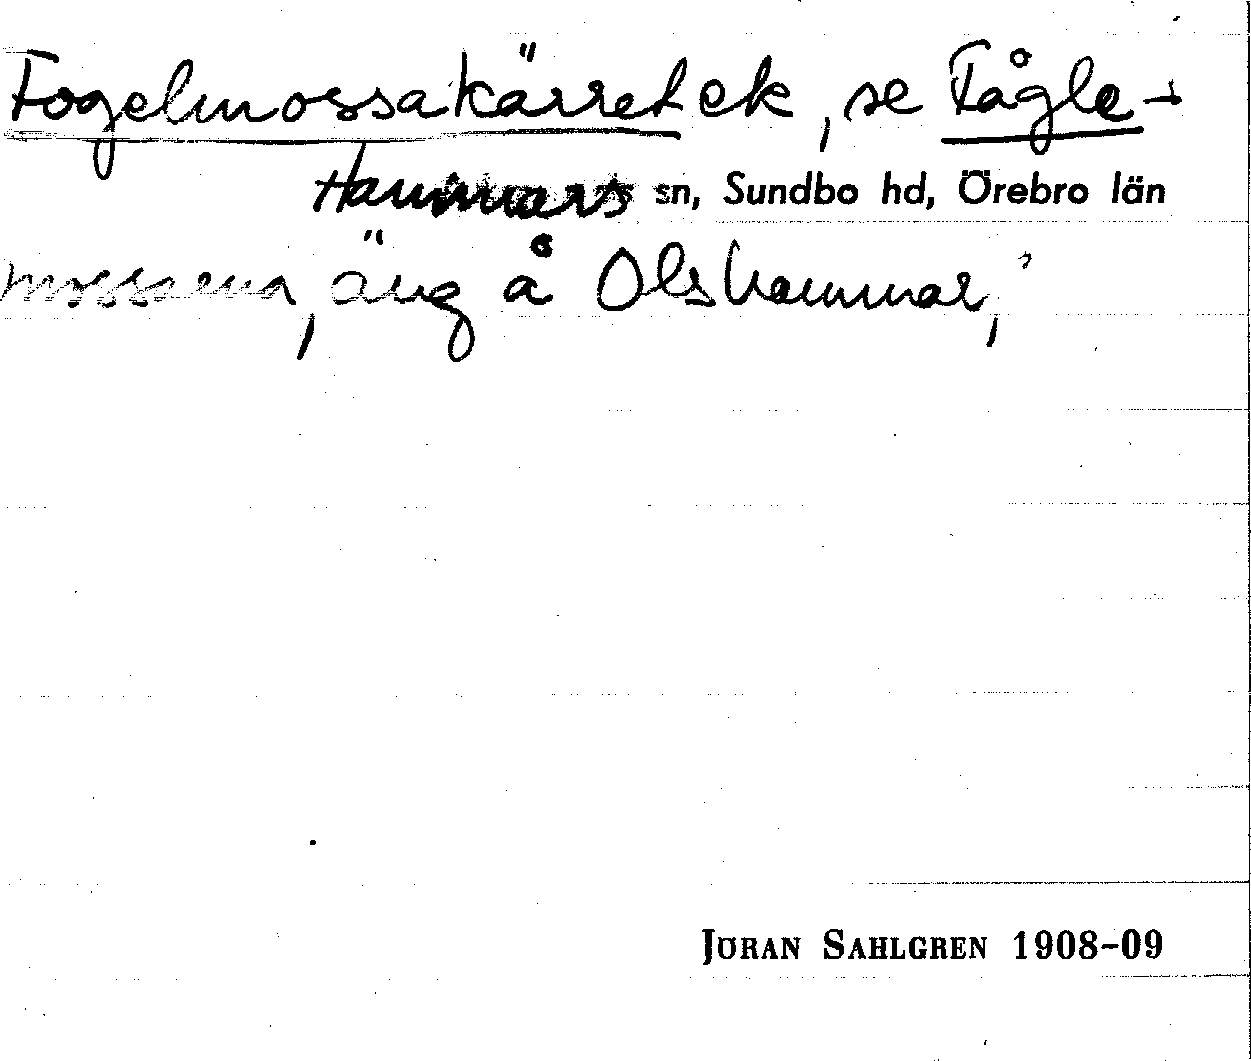 Fogelmossakärret ek, se Fågle-
Hammars sn, Sundbo hd, Örebro län
mossarna, äng å Olshammar,
JÖRAN SAHLGREN 1908-09